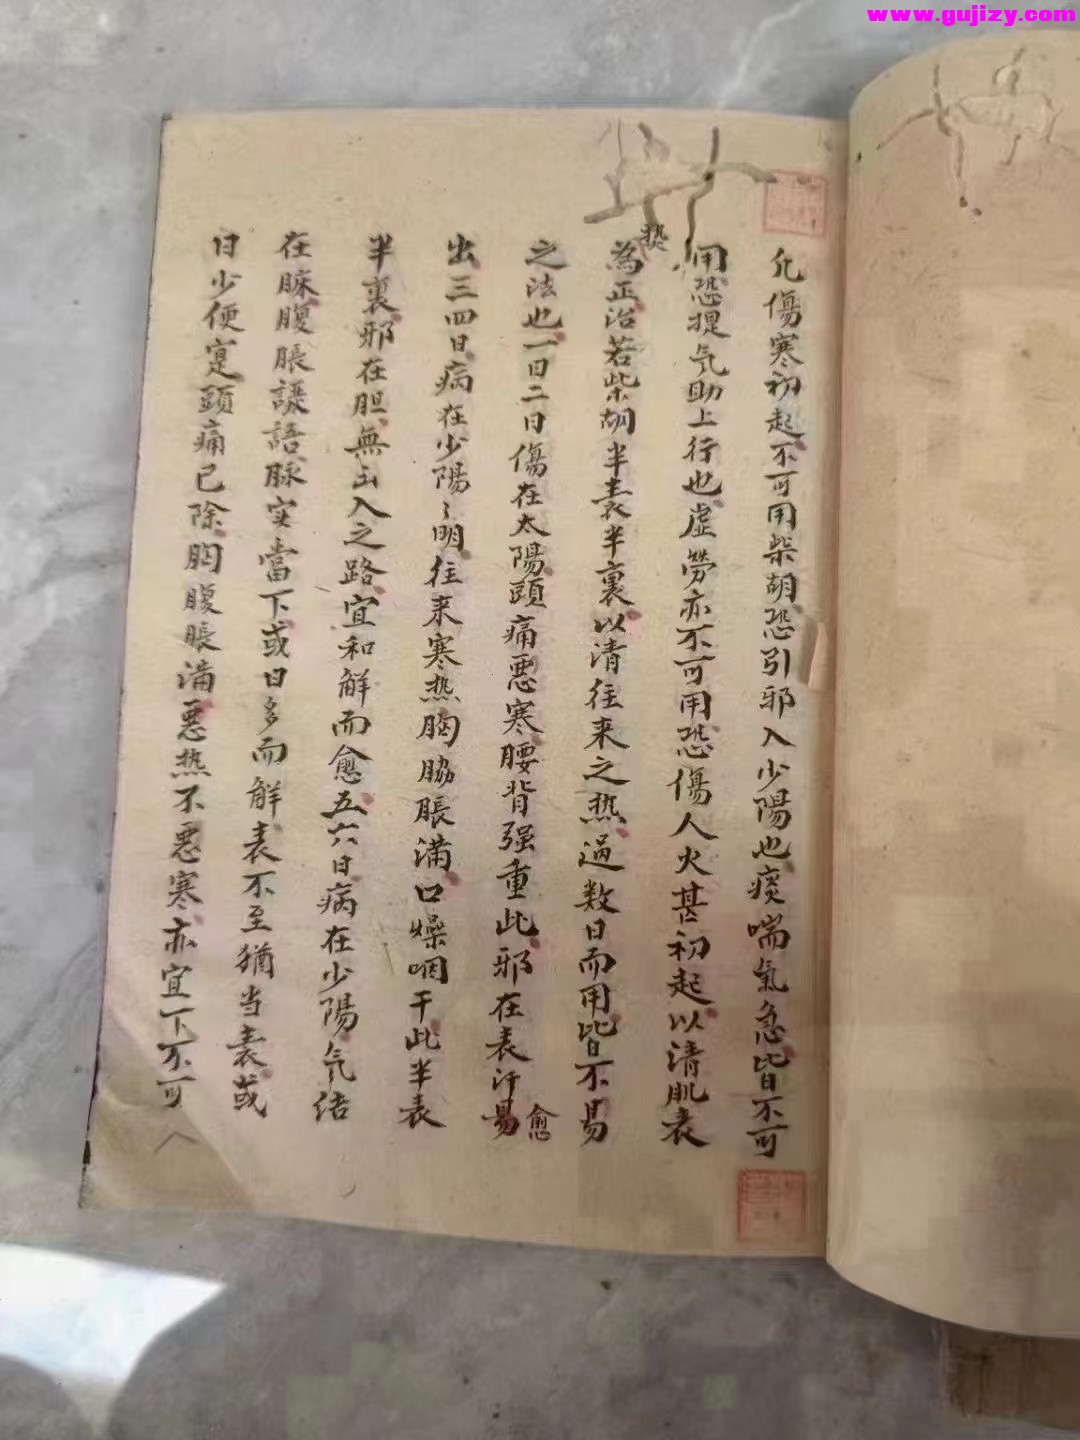 www.gujizy.com
凡傷寒初起不可用柴胡恐引邪入少陽也痰喘氣急皆不可
用恐提气助上行也虛勞亦不可用恐傷人火甚初起以清肌表
热
為正治若柴胡半表半裏以清往来之热過数日而用皆不易
之法也一日二日傷在太陽頭痛惡寒腰背强重此邪在表汗易
愈
出三四日病在少陽〻明往来寒热胸脇脹满口燥咽干此半表
半裏邪在胆無出入之路宜和解而愈五六日病在少陽气结
在腹脹譫語脉实當下或日多而解表不至猶当表或
日少便寔頭痛已除胸腹脹满惡热不惡寒亦宜下不可